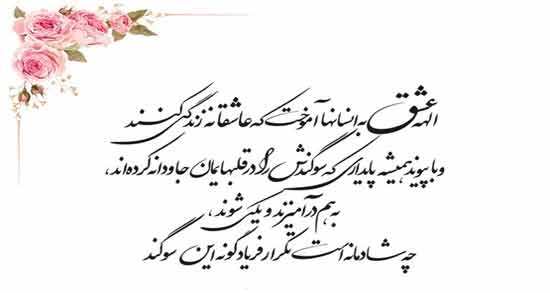 الهه عشق به انسانها آموخت که عاشقانه زندگی کنند
و با پیوند همیشه پایداری که سوگندش را در قلبهایمان جاودانه کرده‌اند،
به هم درآمیزند و یکی شوند،
چه شادمانه است تکرار فریادگونه این سوگند